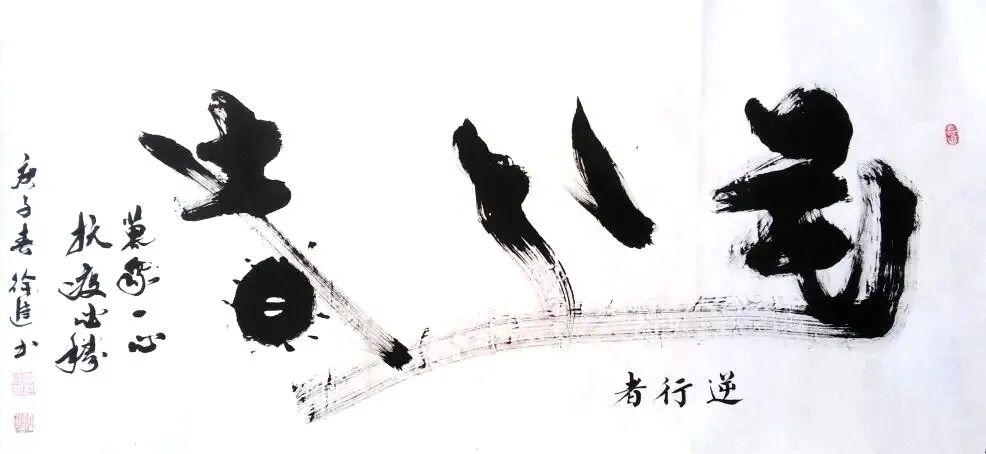 逆行者
逆行者
萬眾一心
抗疫必勝
庚子春 徐進书